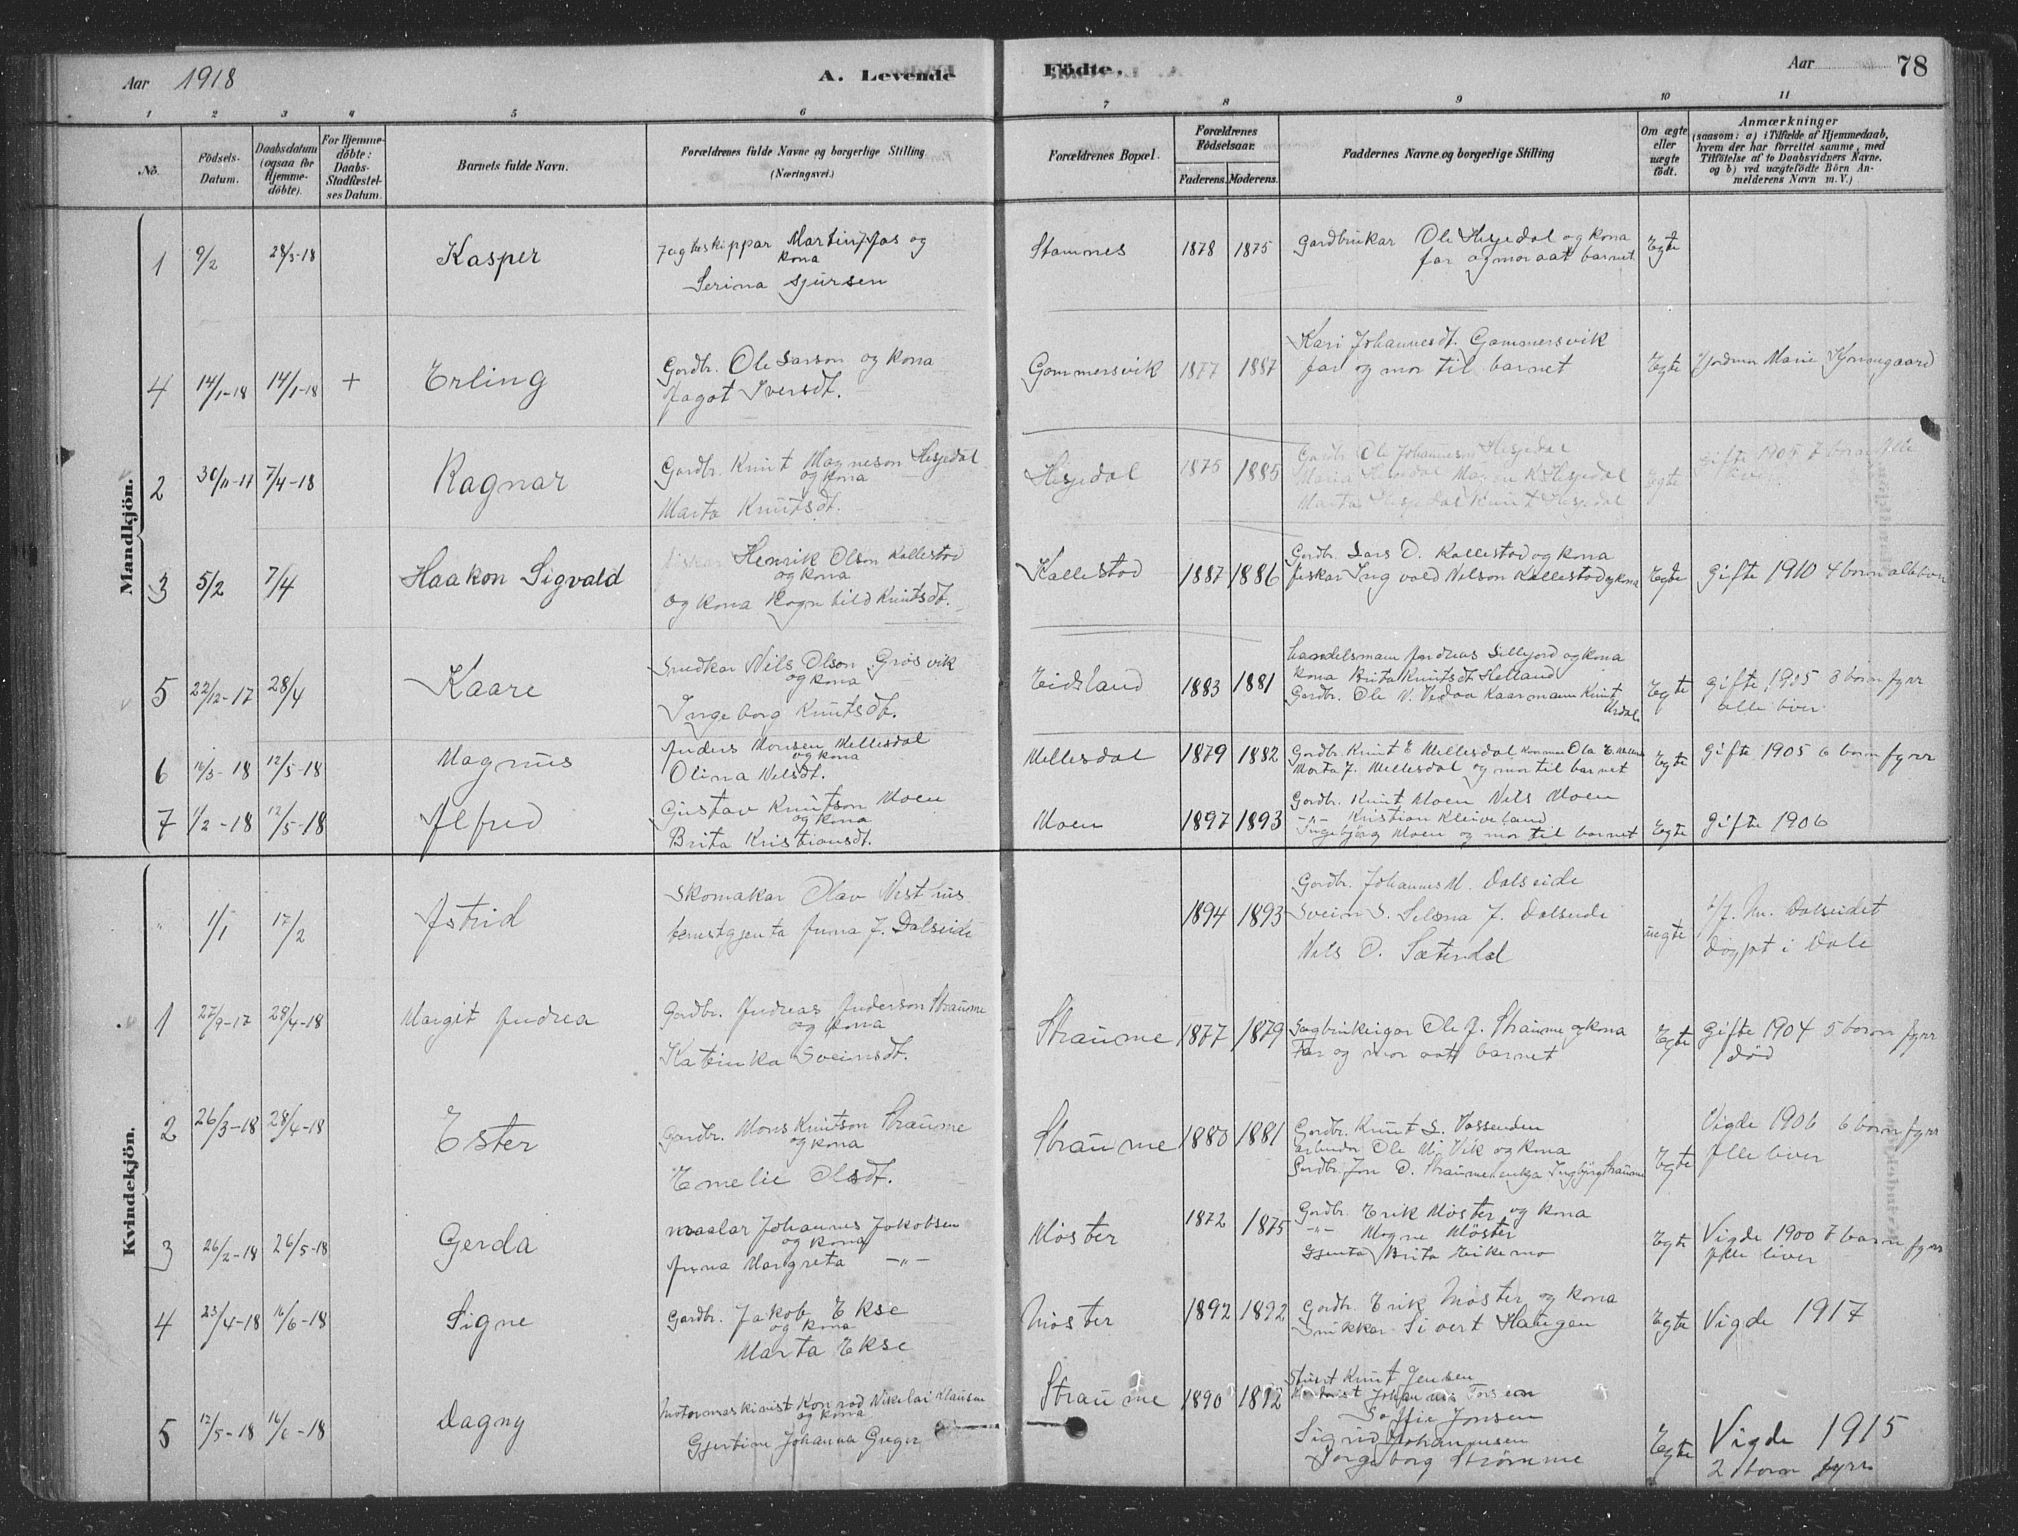 Aar 1918
A. Levende
Födte.
Aar
78
1 2 3 4 5 6 7 8 9 10 11
No.
Födsels-Datum.
Daabsdatum (ogsaa for Hjemmedöbte).
For Hjemmedöbte: Daabs-Stadfæstelses Datum.
Barnets fulde Navn.
Forældrenes fulde Navne og borgerlige Stilling (Næringsvei.)
Forældrenes Bopæl.
Forældrenes Födselsaar.
Faderens. Moderens.
Faddernes Navne og borgerlige Stilling
Om ægte eller uægte födt.
Anmærkninger
(saasom: a) i Tilfælde af Hjemmedaab, hvem der har forrettet samme, med Tilföielse af to Daabsvidners Navne, og b) ved uægtefödte Börn Anmelderens Navn m. V.)
Mandkjön.
1 9/2 28/3-18 Kasper
Jagteskippar Martin Jas og
kona
Serina Sjursen
Stamnes 1878 1875
Gardbrukar Ole Hesjedal og kona
far og mor aat barnet
Egte
4 14/1-18 14/1-18 + Erling
Gardbr. Ole Larson og kona
Iversdt.
Gammersvik 1877 1887
Kari Johannesdt. Gammersvik
far og mor til barnet
Egte
Jordmor Marie
2 30/11-17 7/4-18 Ragnar
Gardbr. Knut Magneson Hesjedal
og kona
Marta Knutsdt.
Hesjedal 1875 1885
Gardbr. Ole Johannesen Hesjedal
Maria Hesjedal Magne K. Hesjedal
Marta Hesjedal Knut Hesjedal
Egte
gifte 1905 7 born
3 5/2 7/4 Haakon Sigvald
Fiskar Henrik Olson Kallestad
og kona
og kona Ragnhild Knutsdt.
Kallestad 1887 1886
Gardbr. Lars O. Kallestad og kona
fiskar Ingvald Nilson Kallestad og kona
Egte
Gifte 1910 4 born
5 22/12-17 28/4 Kaare
Snedkar Nils Olson Grøsvik
og kona
Ingeborg Knutsdt.
Eidsland 1883 1881
handelsmann Andreas Sellejord og kona
kona Brita Knutsdt Helland
Gardbr. Ole N. Vedaa Kaarmann Knut
Urdal
Egte
gifte 1905 3 born fyrr
alle liver
6 16/3-18 12/5-18 Magnus
Anders Monsen Mellesdal
og kona
Olina Nilsdt.
Mellesdal 1879 1882
Gardbr. Knut E Mellesdal
Marta J. Mellesdal og mor til barnet
Egte
Gifte 1905 6 born fyrr
7 1/2-18 12/5-18 Alfred
Gustav Knutson Moen
og kona
Brita Kristiansdt.
Moen 1897 1893
Gardbr. Knut Moen Nils Moen
-"- Kristian Kleiveland
Ingebjørg Moen og mor til barnet
Egte
Gifte 1906
Kvindekjön.
" 1/1 17/2 Astrid
Skomakar Olav Vesthus
tenestgjenta Anna J. Dalseide
1894 1893
Gardbr. Johannes M. Dalseide
Svein S. Selena J. Dalseide
Nils O. Sætendal
uegte
Dalseidet
døypt i Dale
1 27/9-17 28/4-18 Margit Andrea
Gardbr. Andreas Anderson Straume
og kona
Katinka Sveinsdt.
Straume 1877 1879
Sagbrukeigar Ole J. Straume og kona
Far og mor aat barnet
Egte
Gifte 1904 5 born fyrr
1 død
2 26/3-18 28/4-18 Ester
Gardbr. Mons Knutson Straume
og kona
Emelie Olsdt.
Straume 1880 1881
Gardbr. Knut S. Vassenden
arbeidar Ole M. Vik og kona
Gardbr. Jon O. Straume enkja Ingbjørg Straume
Egte
Vigde 1906 6 born fyrr
Alle liver
3 26/2-18 26/5-18 Gerda
Maalar Johannes Jakobsen
og kona
Anna Margreta -"-
Møster 1872 1875
Gardbr. Erik Møster og kona
-"- Magne Møster
Gjenta Brita Eikemo
Egte
Vigde 1900 7 born fyrr
Alle liver
4 23/4-18 16/6-18 Signe
Gardbr. Jakob Ekse
og kona
Marta Ekse
Møster 1892 1892
Gardbr. Erik Møster og kona
Snikkar Sivert Haugen
Egte
Vigde 1917
5 12/5-18 16/6-18 Dagny
Motormaskinist Konrad Nikolai Klausen
og kona
Gjertine Johanna Greger
Straume 1890 1892
Knut Jensen
Johannes
Soffie Jonsen
Sigrid Johannesen
Ingeborg Strømme
Egte
Vigde 1915
2 born fyrr